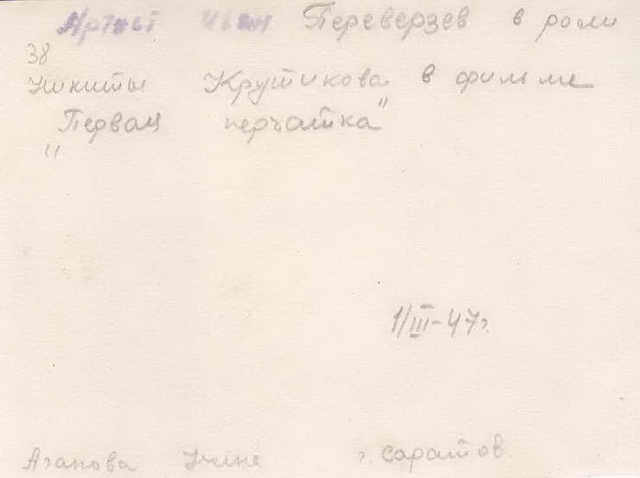 Артист Иван Переверзев в роли
38
Никиты Крутикова в фильме
"Первая перчатка"
1/III-47г.
Агапова г. Саратов